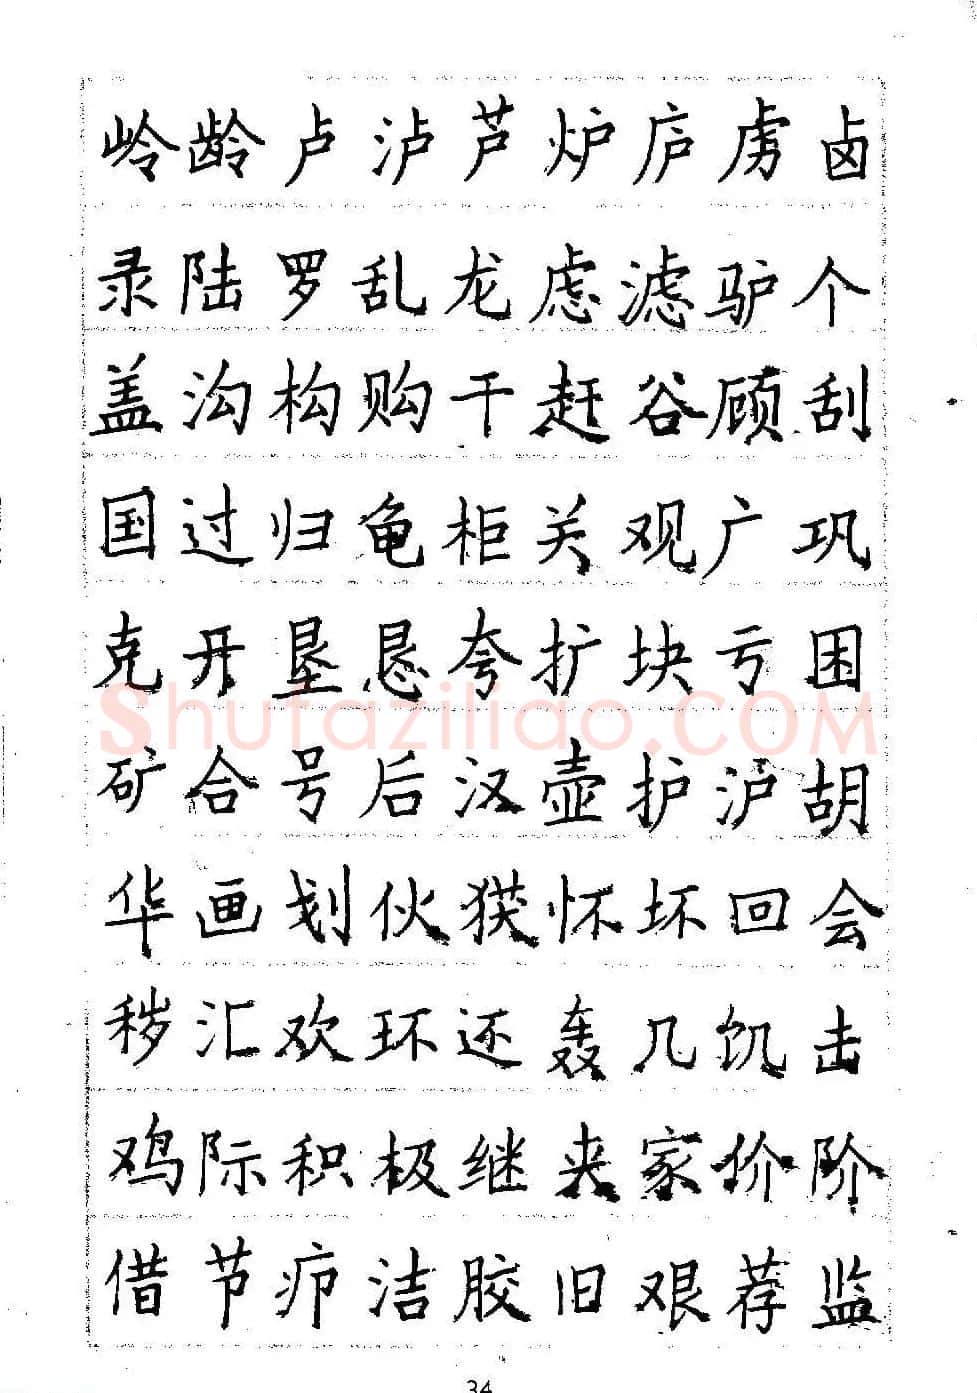 岭龄卢泸芦炉庐虏卤
录陆罗乱龙虑滤驴个
盖沟构购干赶谷顾刮
国过归龟柜关观广巩
克开垦恳夸扩块亏困
Shufaziliao.COM
矿合号后汉壶护沪胡
华画划伙获怀坏回会
秽汇欢环还轰几饥击
鸡际积极继夹家价阶
借节疖洁胶旧艰荐监
34